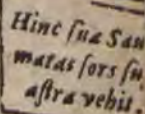 Hinc ſua San
matas ſors ſu
aſtra vehit.